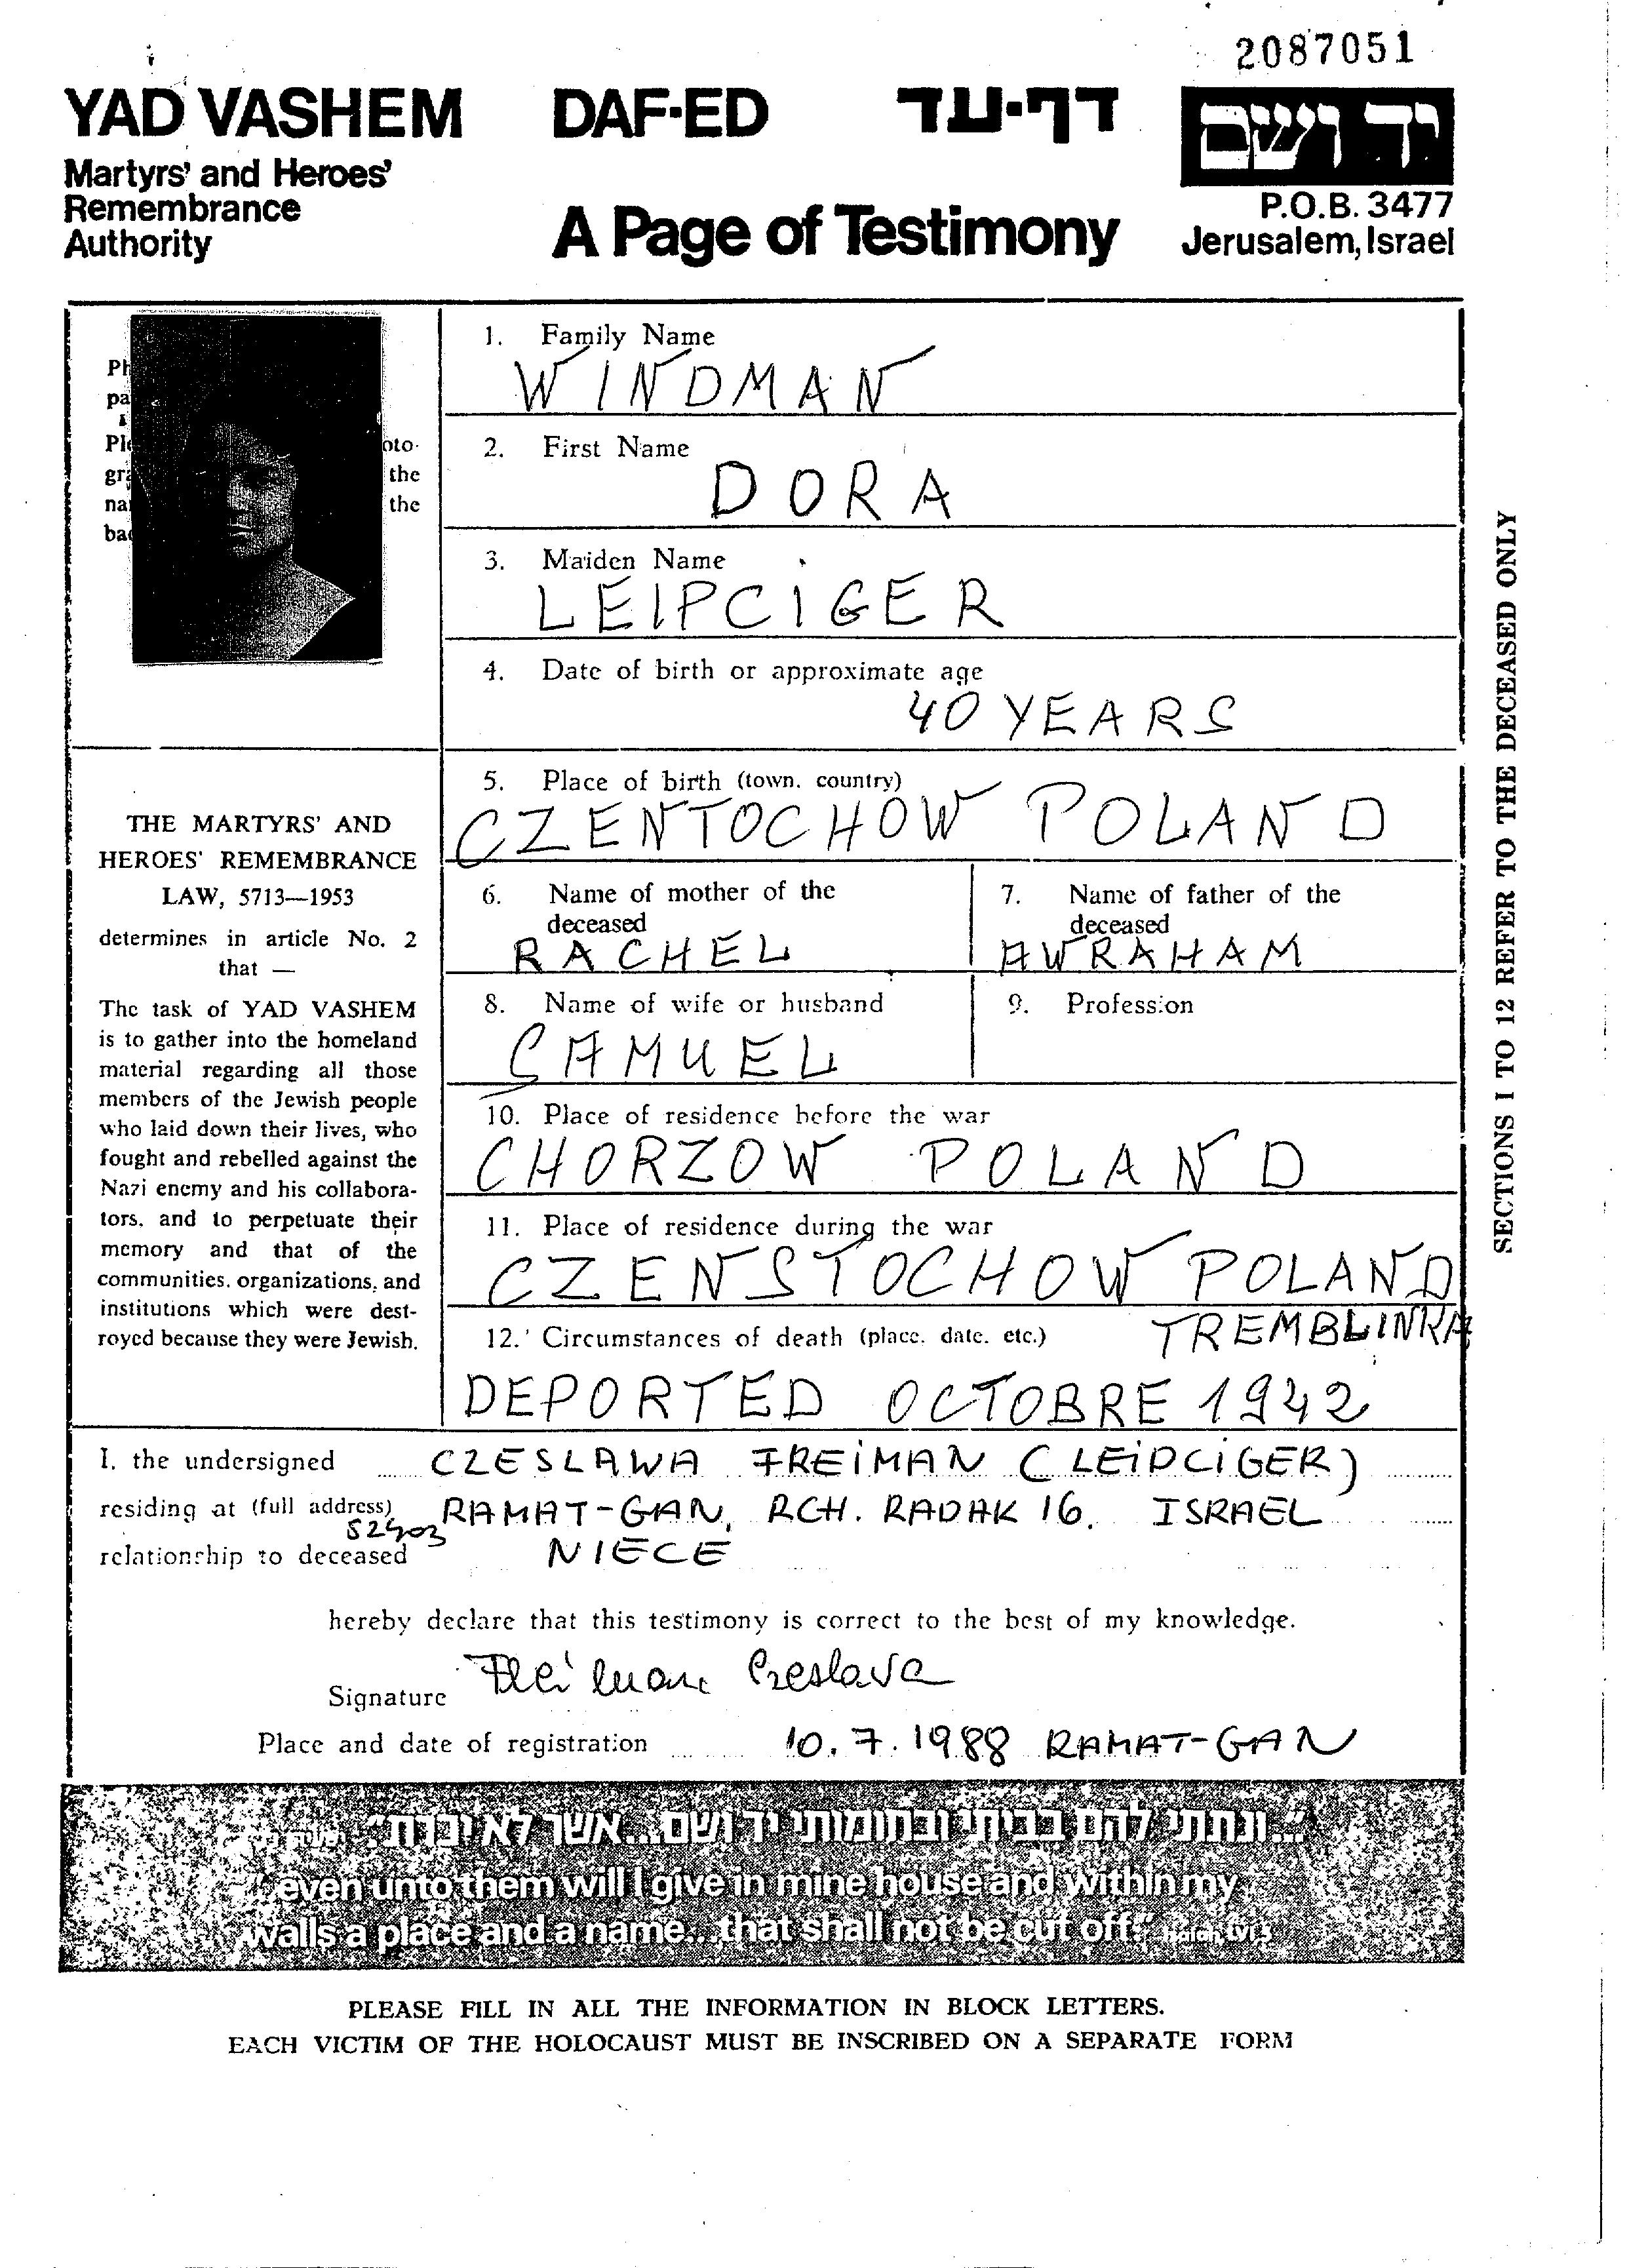 2087051
YAD VASHEM DAF-ED דף-עד יד ושם
Martyrs' and Heroes'
Remembrance
Authority
A Page of Testimony
P.O.B. 3477
Jerusalem, Israel
1. Family Name
WINDMAN
2. First Name
DORA
3. Maiden Name
LEIPCIGER
4. Date of birth or approximate age
40 YEARS
5. Place of birth (town, country)
CZENTOCHOW POLAND
6. Name of mother of the
deceased
RACHEL
7. Name of father of the
deceased
AWRAHAM
8. Name of wife or husband
SAMUEL
9. Profession
10. Place of residence before the war
CHORZOW POLAND
11. Place of residence during the war
CZENSTOCHOW POLAND
12. Circumstances of death (place, date, etc.) TREMBLINKA
DEPORTED OCTOBRE 1942
the
the
THE MARTYRS' AND
HEROES' REMEMBRANCE
LAW, 5713—1953
determines in article No. 2
that —
The task of YAD VASHEM
is to gather into the homeland
material regarding all those
members of the Jewish people
who laid down their lives, who
fought and rebelled against the
Nazi enemy and his collabora-
tors, and to perpetuate their
memory and that of the
communities, organizations, and
institutions which were dest-
royed because they were Jewish.
SECTIONS 1 TO 12 REFER TO THE DECEASED ONLY
I, the undersigned CZESLAWA FREIMAN (LEIPCIGER)
residing at (full address) RAMAT-GAN, RCH. RADAK 16. ISRAEL
52403
relationship to deceased NIECE
hereby declare that this testimony is correct to the best of my knowledge.
Signature Freiman Czeslava
Place and date of registration 10.7.1988 RAMAT-GAN
"...ונתתי להם בביתי ובחומותי יד ושם...אשר לא יכרת"
"...even unto them will I give in mine house and within my
walls a place and a name...that shall not be cut off." Isaiah LVI 5
PLEASE FILL IN ALL THE INFORMATION IN BLOCK LETTERS.
EACH VICTIM OF THE HOLOCAUST MUST BE INSCRIBED ON A SEPARATE FORM